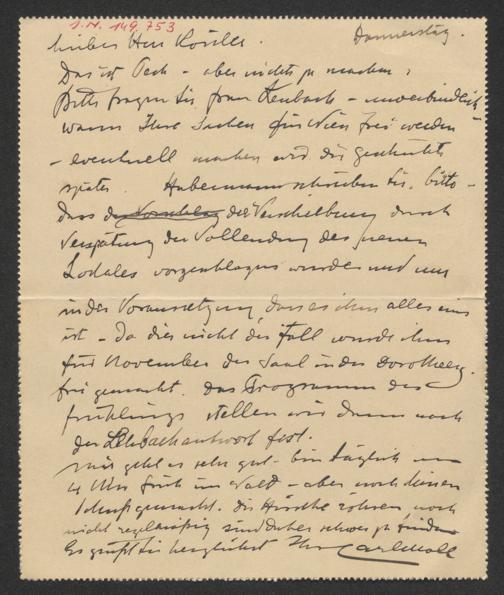 I.N. 149.753
Lieber Herr Roessler. Donnerstag.
Das ist Pech – aber nichts zu machen.
Bitte fragen Sie Frau Lenbach – unverbindlich –
wann Ihre Sachen für Wien frei werden
– eventuell machen wir die Geschichte
später. Habermann schreiben Sie, bitte –
dass der Vorschlag der Verschiebung durch
Verspätung der Vollendung des neuen
Lokales vorgeschlagen wurde und nur
in der Voraussetzung dass es ihm alles eins
ist – Da dies nicht der Fall wurde ihm
für November der Saal in der Dorotheerg.
frei gemacht. Das Programm des
Frühlings stellen wir dann nach
der Lenbachantwort fest.
Mir geht es sehr gut – bin täglich um
4 Uhr früh im Wald – aber noch keinen
Schuß gemacht. Die Hirsche röhren noch
nicht regelmäßig sind daher schwer zu finden
Es grüßt Sie herzlichst Ihr Carl Moll